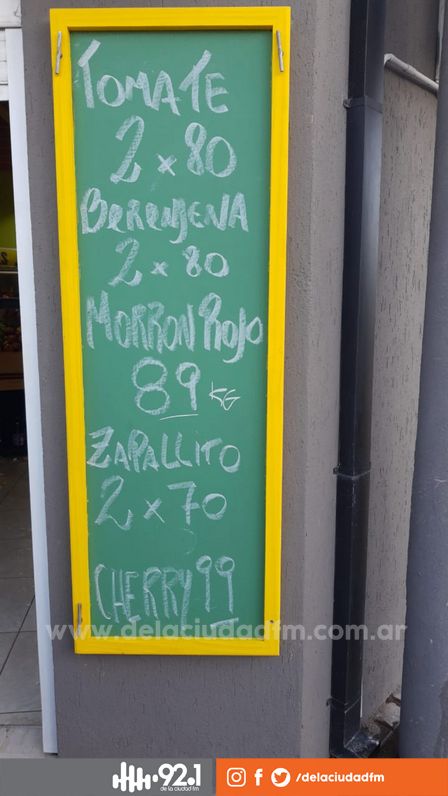 TOMATE
2 x 80
BereNjeNA
2 x 80
MORRON Rojo
89 KG
ZAPALLITO
2 x 70
CHERRY 99
www.delaciudadfm.com.ar
92.1
de la ciudad fm
/delaciudadfm